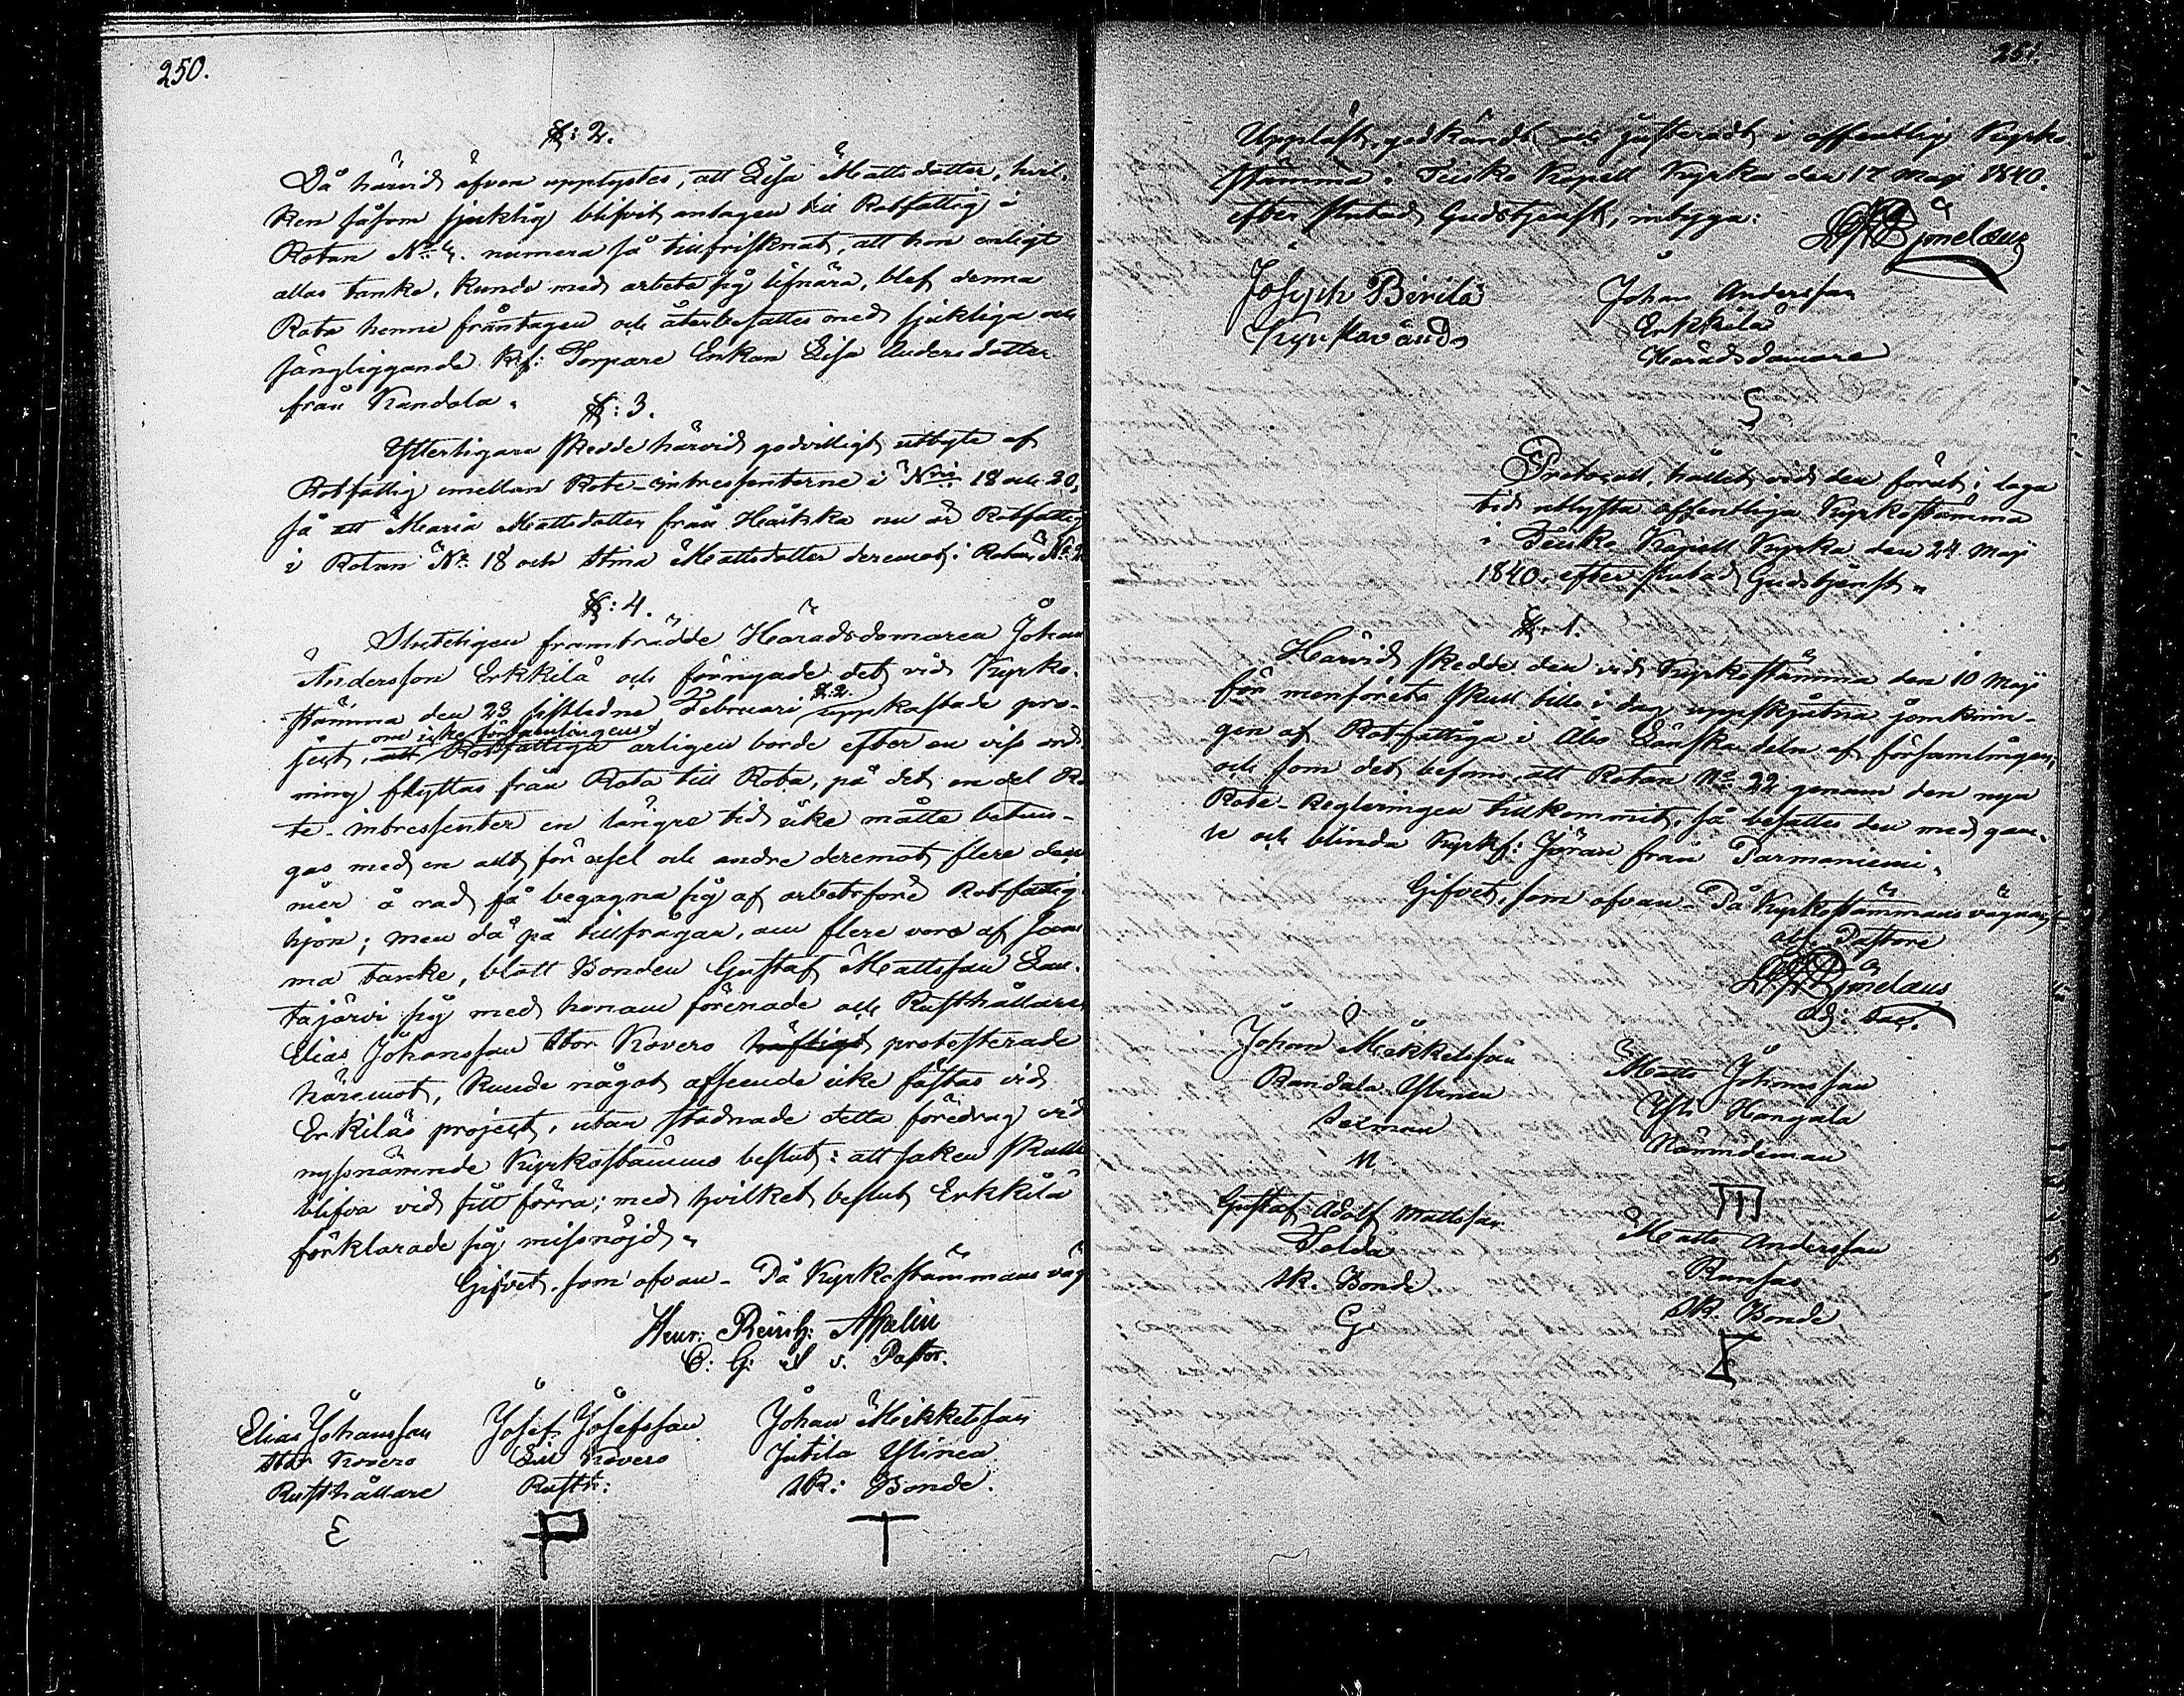 250.
§: 2.
Då härvid äfven upplystes, att Lisa Mattsdotter, hvil-
ken såsom sjuklig blifvit antagen till Rotfattig i
Rotan No 4. numera så tillfrisknat, att hon enligt
allas tanke, kunde med arbete sig lifnära, blef denna
Rota henne fråntagen och återbesattes med sjukliga och
sängliggande Kkf: Torpare Enkan Lisa Andersdotter
från Kandola.
§: 3.
Ytterligare skedde härvid godvilligt utbyte af
Rotfattig emellan Rote-intressenterne i Nris 18 och 20,
så att Maria Mattsdotter från Haikka nu är Rotfattig
i Rotan No 18 och Stina Mattsdotter deremot i Rotan No 2
§: 4.
Slutligen framträdde Häradsdomaren Johan
Andersson Erkkilä och förnyade det vid Kyrko-
stämma den 23 sistledne Februari §. 2. uppkastade pro-
om icke församlingens
ject, att Rotfattiga årligen borde efter en viss ord
ning flyttas från Rota till Rota, på det en del Ro
te-intressenter en längre tid icke måtte betun-
gas med en allt för usel och andre deremot flere den
ner å rad få begagna sig af arbetsföre Rotfattig
hjon; men då på tillfrågan, om flere voro af sam
ma tanke, blott Bonden Gustaf Mattsson Lau-
tajärvi sig med honom förenade och Rusthållaren
Elias Johansson Stor Kovero häftigt protesterade
häremot, kunde något afseende icke fästas vid
Erkiläs project, utan stadnade detta föredrag vid
nyssnämnde Kyrkostämmo beslut: att saken skulle
blifva vid sitt förra; med hvilket beslut Erkkilä
förklarade sig missnöjd.
Gifvet, som ofvan. På Kyrkostämmans väg
Henr: Reinh: Ahalin
C: G: S v. Pastor.
Elias Johansson
Stor Kovero
Rusthållare
E
Josef Josefsson
Lill Kovero
Rusth:
P
Johan Mikkelsson
Jutila Ylinen
Sk: Bonde.
T
251.
Uppläst, godkändt och justeradt i offentlig Kyrko-
stämma i Teisko Kapell Kyrka den 17 Maji 1840.
efter slutad Gudstjenst, intyga:
Joseph Bivilä
Kyrkovärd
Johan Andersson
Erkkilä
Häradsdomare
Protocoll, hållet vid den förut i laga
tid utlysta offentliga Kyrkostämma
i Teisko Kapell Kyrka den 24 Maji
1840. efter slutad Gudstjenst.
§: 1.
Härvid skedde den vid Kyrkostämma den 10 Maji
för menförets skull till i dag uppskjutna jemknin-
gen af Rotfattiga i Åbo Länska delen af församlingen,
och som det befans att Rotan No 22 genom den nya
Rote-Regleringen tillkommit, så besattes den med gam-
le och blinda Kyrkf: Jöran från Parmaniemi.
Gifvet, som ofvan. På Kyrkostämmans vägnar,
Pastore
Johan Mikkelsson
Kandala Ylinen
Sexman
M
Matts Johansson
Yli Hangala
Nämndeman
Gustaf Adolf Mattsson
Tolda
Sk. Bonde
G
Matts Andersson
Runsas
Sk. Bonde